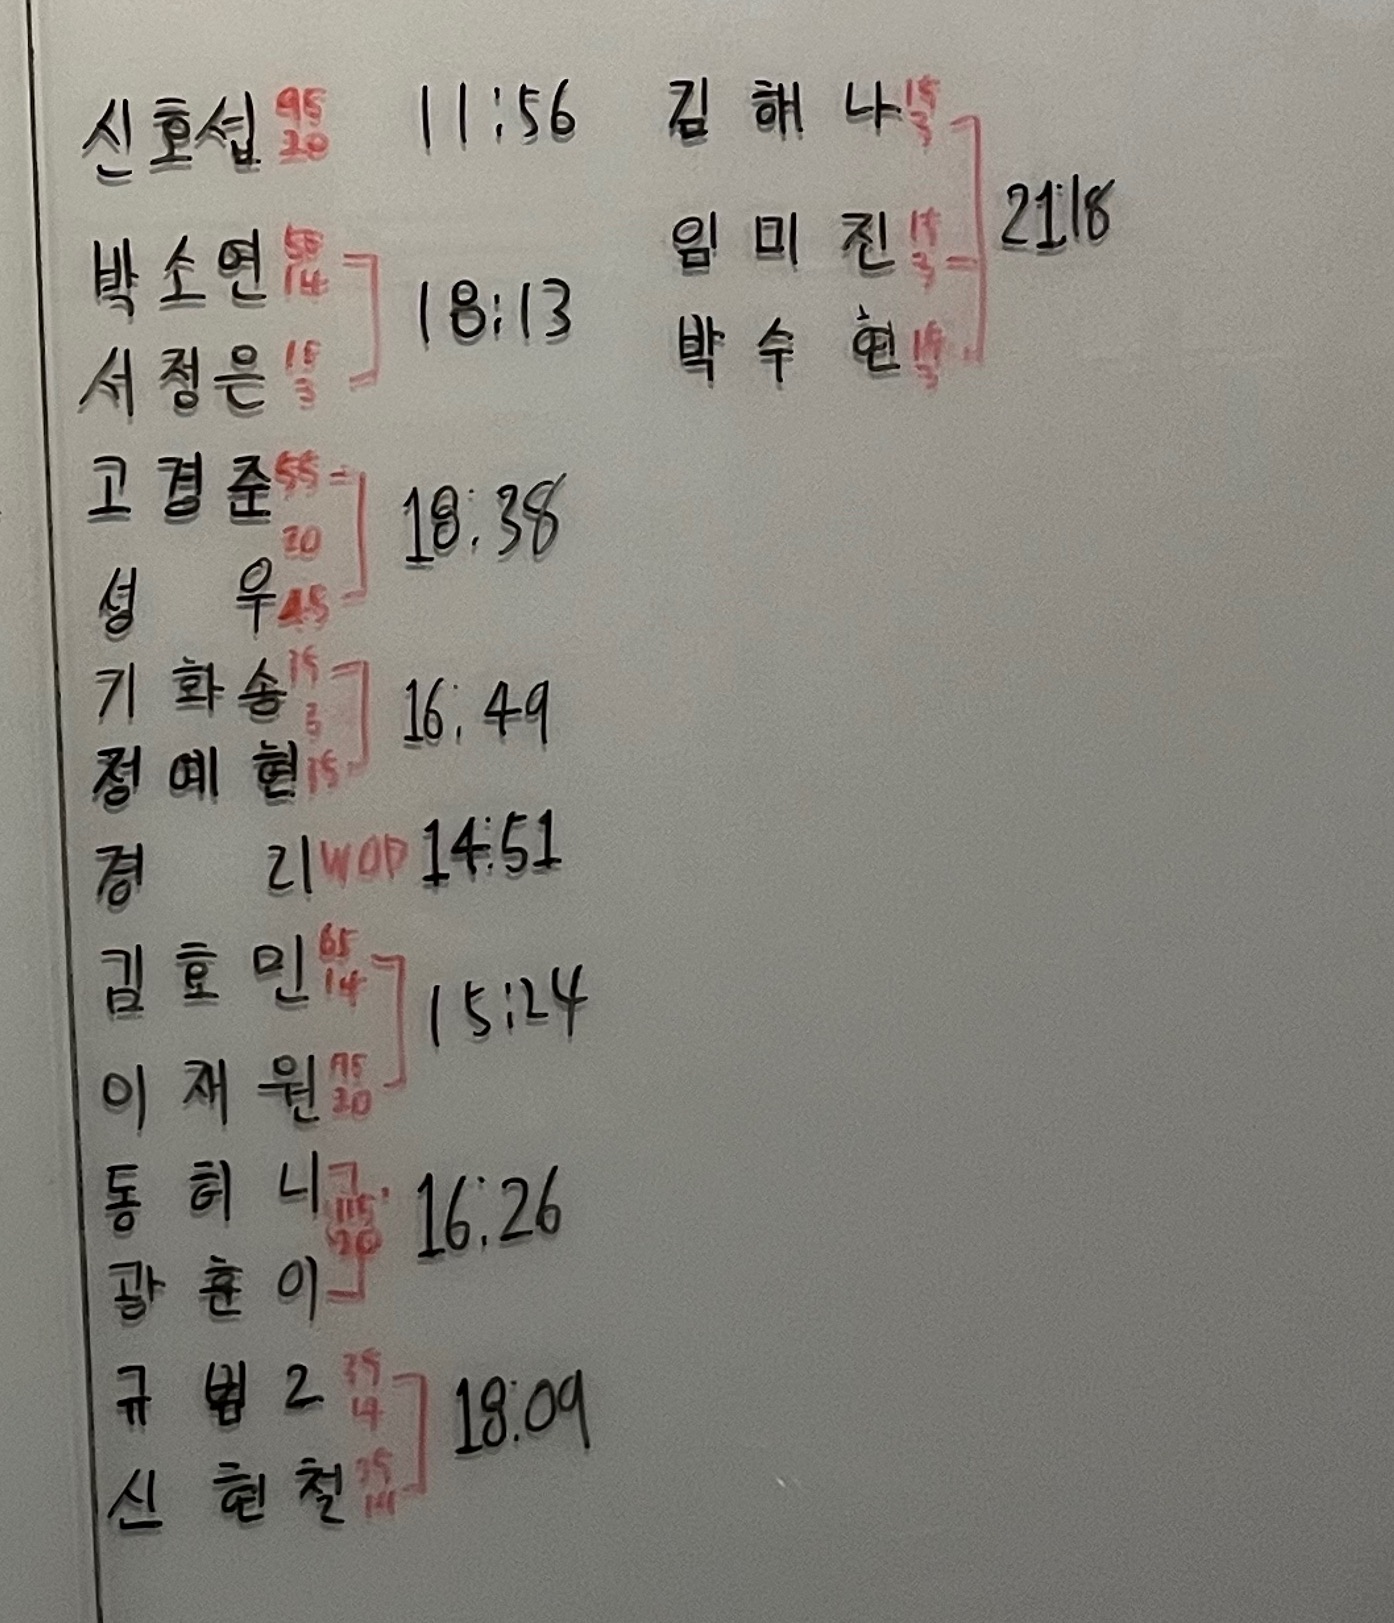 신호섭 95 11:56
20
박소연
14 18:13
서정은 15
3
고경준 55 18:38
20
성 우 45
기화송 15 16:49
3
정예현 15
경 리 WOD 14:51
김효민 65 15:24
14
이재원 95
20
동허니 115 16:26
20
광훈이
규범2 35 18:09
14
신현철 35
14
김해나 15
3 21:18
임미진 15
3
박수현 15
3